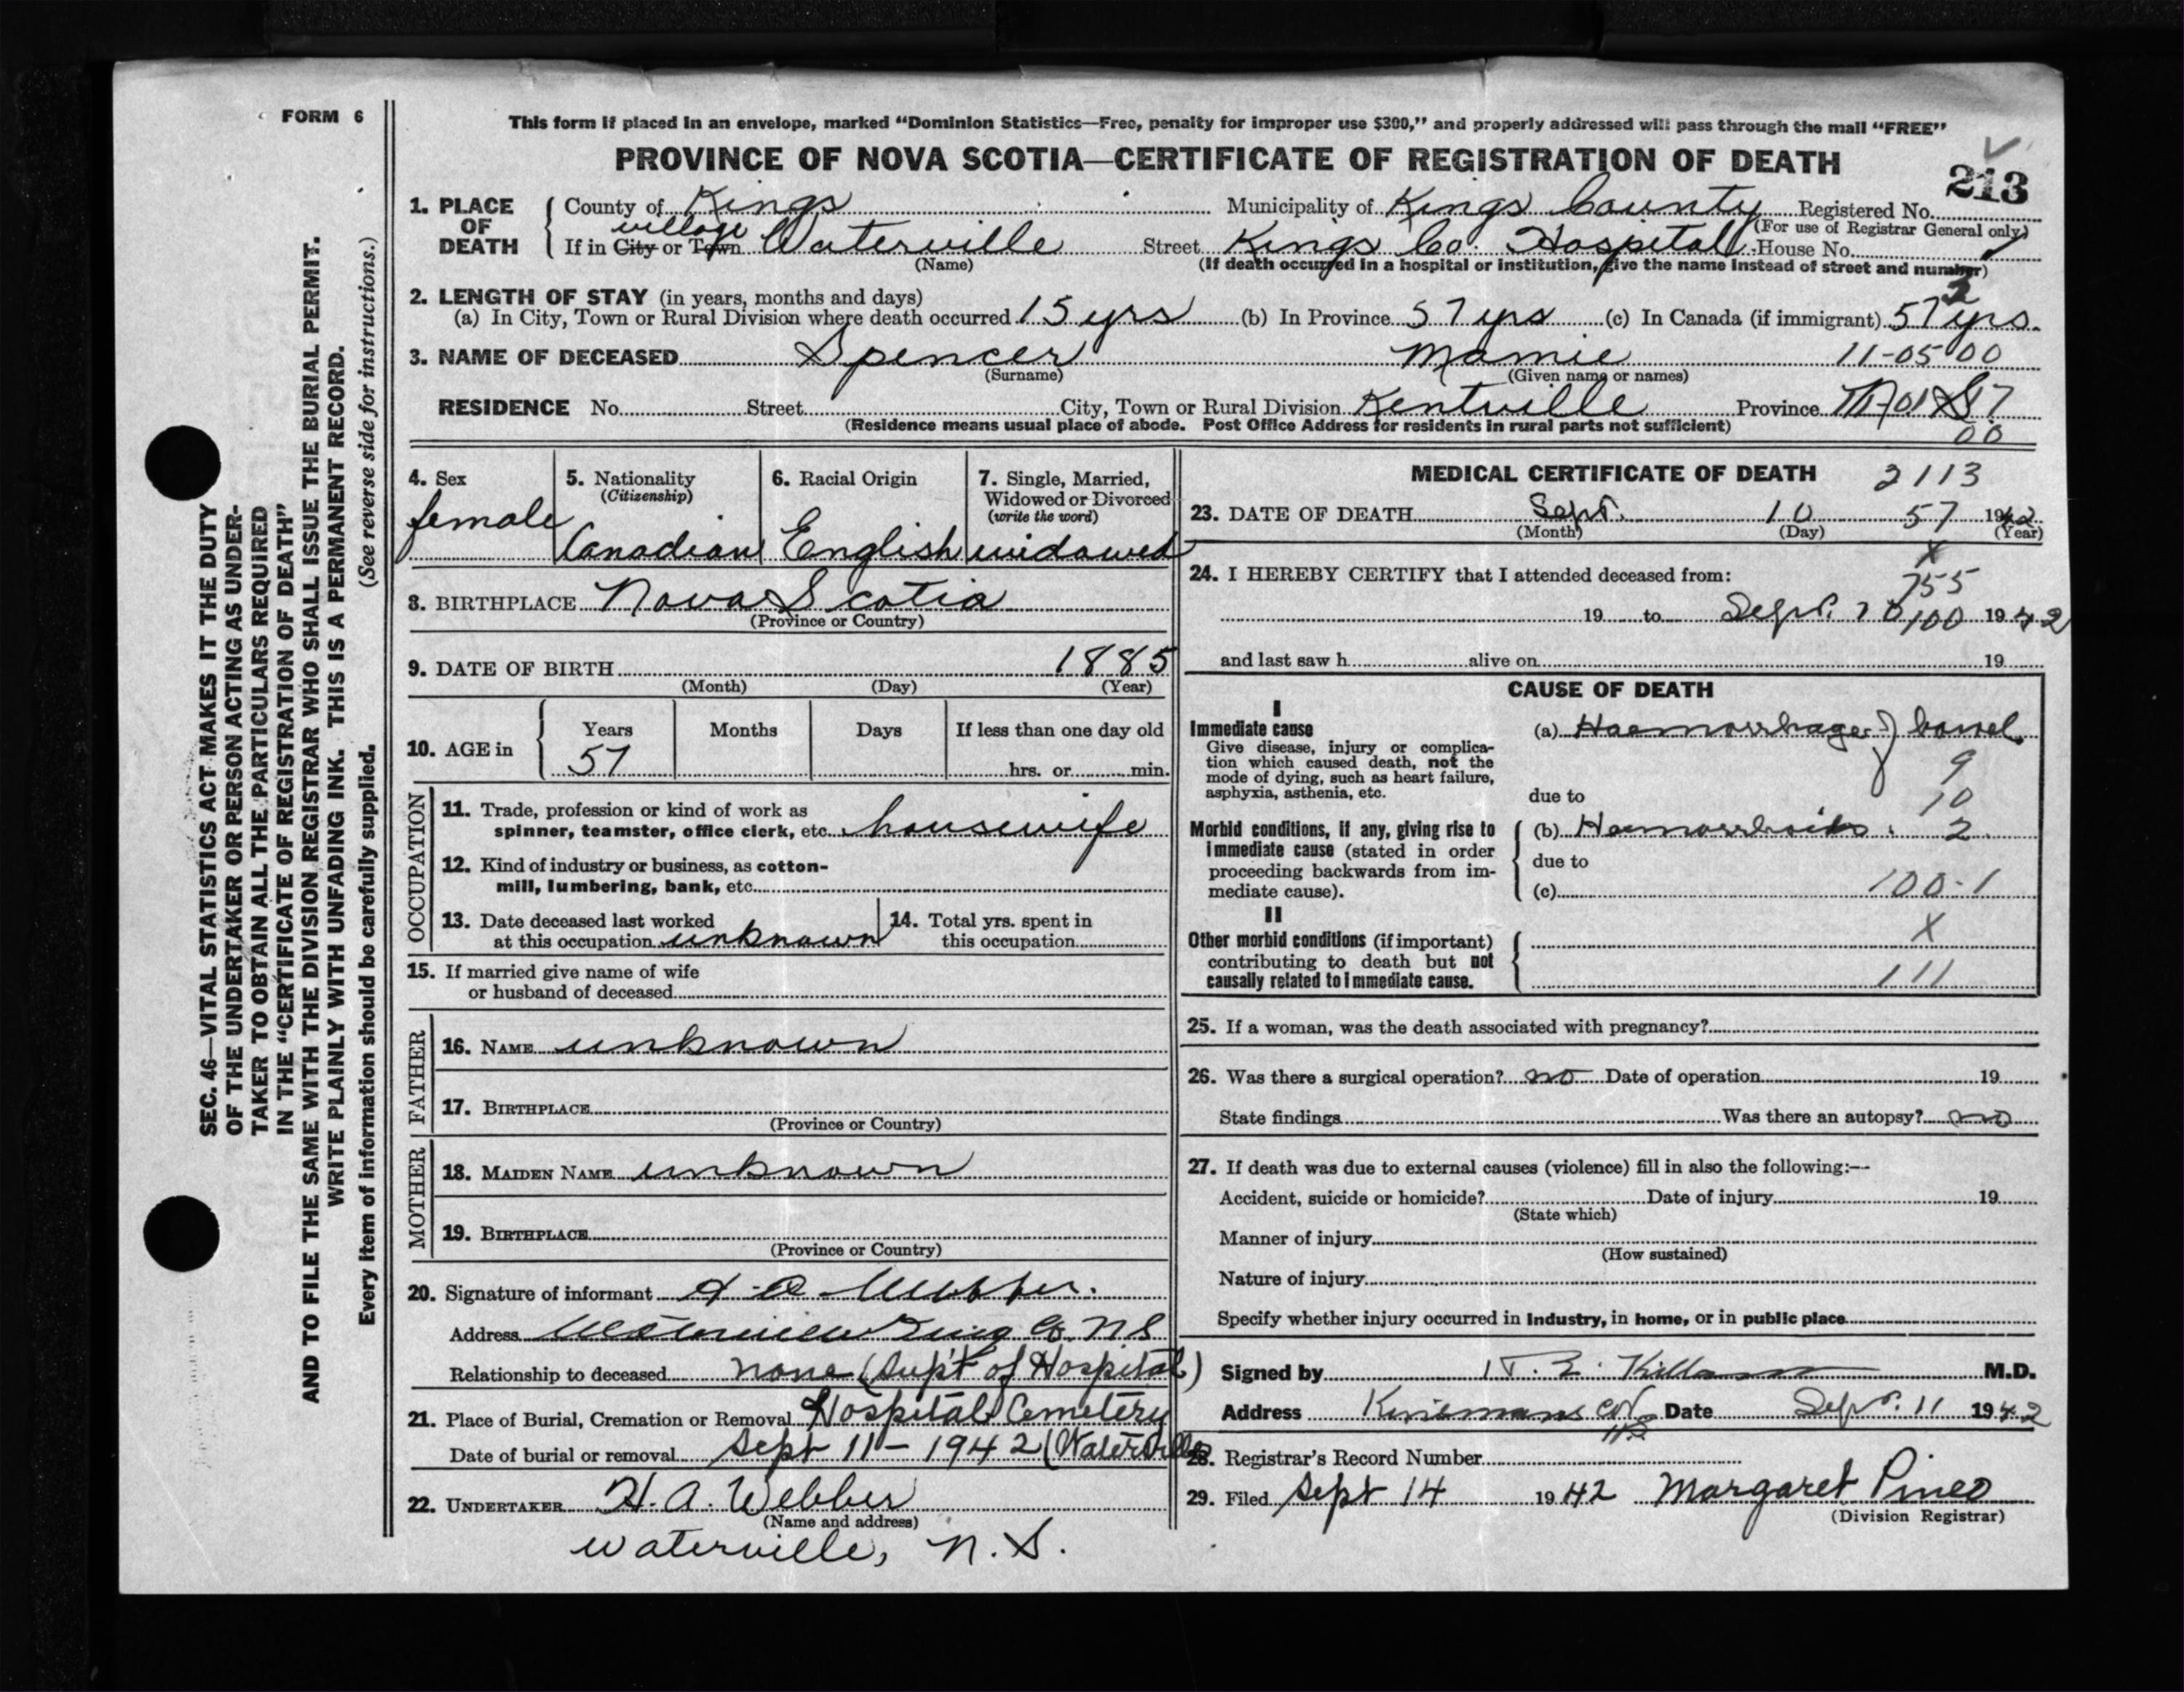 FORM 6
This form if placed in an envelope, marked "Dominion Statistics—Free, penalty for improper use $300," and properly addressed will pass through the mail "FREE"
PROVINCE OF NOVA SCOTIA—CERTIFICATE OF REGISTRATION OF DEATH
213
1. PLACE OF DEATH
County of Kings Municipality of Kings County Registered No.
(For use of Registrar General only)
village
If in City or Town Waterville Street Kings Co. Hospital House No.
(Name) (If death occurred in a hospital or institution, give the name instead of street and number)
2. LENGTH OF STAY (in years, months and days)
(a) In City, Town or Rural Division where death occurred 15 yrs (b) In Province 57 yrs (c) In Canada (if immigrant) 57 yrs.
3. NAME OF DECEASED Spencer Mamie 11-05 00
(Surname) (Given name or names)
RESIDENCE No. Street City, Town or Rural Division Kentville Province
(Residence means usual place of abode. Post Office Address for residents in rural parts not sufficient) 00
4. Sex female
5. Nationality (Citizenship) Canadian
6. Racial Origin English
7. Single, Married, Widowed or Divorced (write the word) widowed
8. BIRTHPLACE Nova Scotia
(Province or Country)
9. DATE OF BIRTH 1885
(Month) (Day) (Year)
10. AGE in Years 57 Months Days If less than one day old hrs. or min.
OCCUPATION
11. Trade, profession or kind of work as
spinner, teamster, office clerk, etc. housewife
12. Kind of industry or business, as cotton-
mill, lumbering, bank, etc.
13. Date deceased last worked
at this occupation unknown
14. Total yrs. spent in
this occupation
15. If married give name of wife
or husband of deceased
FATHER
16. NAME unknown
17. BIRTHPLACE
(Province or Country)
MOTHER
18. MAIDEN NAME unknown
19. BIRTHPLACE
(Province or Country)
20. Signature of informant Webber.
Address Co. NS
Relationship to deceased none (Sup't of Hospital)
21. Place of Burial, Cremation or Removal Hospital Cemetery
Date of burial or removal Sept 11 - 1942 (Waterville
22. UNDERTAKER H. A. Webber
(Name and address)
Waterville, N. S.
MEDICAL CERTIFICATE OF DEATH 2113
23. DATE OF DEATH Sept. 10 57 1942
(Month) (Day) (Year)
x
24. I HEREBY CERTIFY that I attended deceased from:
755
19 to Sept. 10 100 1942
and last saw h alive on 19
CAUSE OF DEATH
I
Immediate cause
Give disease, injury or complica-
tion which caused death, not the
mode of dying, such as heart failure,
asphyxia, asthenia, etc.
(a) Haemorrhage of bowel.
9
due to 10
Morbid conditions, if any, giving rise to
immediate cause (stated in order
proceeding backwards from im-
mediate cause).
(b) Haemorrhoids. 2
due to
(c) 100-1
II
Other morbid conditions (if important)
contributing to death but not
causally related to immediate cause.
X
111
25. If a woman, was the death associated with pregnancy?
26. Was there a surgical operation? no Date of operation 19
State findings Was there an autopsy? no
27. If death was due to external causes (violence) fill in also the following:—
Accident, suicide or homicide? Date of injury 19
(State which)
Manner of injury
(How sustained)
Nature of injury
Specify whether injury occurred in industry, in home, or in public place
Signed by M.D.
Address Date Sept. 11 1942
28. Registrar's Record Number
29. Filed Sept 14 1942 Margaret Pineo
(Division Registrar)
SEC. 46—VITAL STATISTICS ACT MAKES IT THE DUTY
OF THE UNDERTAKER OR PERSON ACTING AS UNDER-
TAKER TO OBTAIN ALL THE PARTICULARS REQUIRED
IN THE "CERTIFICATE OF REGISTRATION OF DEATH"
AND TO FILE THE SAME WITH THE DIVISION REGISTRAR WHO SHALL ISSUE THE BURIAL PERMIT.
WRITE PLAINLY WITH UNFADING INK. THIS IS A PERMANENT RECORD.
Every item of information should be carefully supplied. (See reverse side for instructions.)